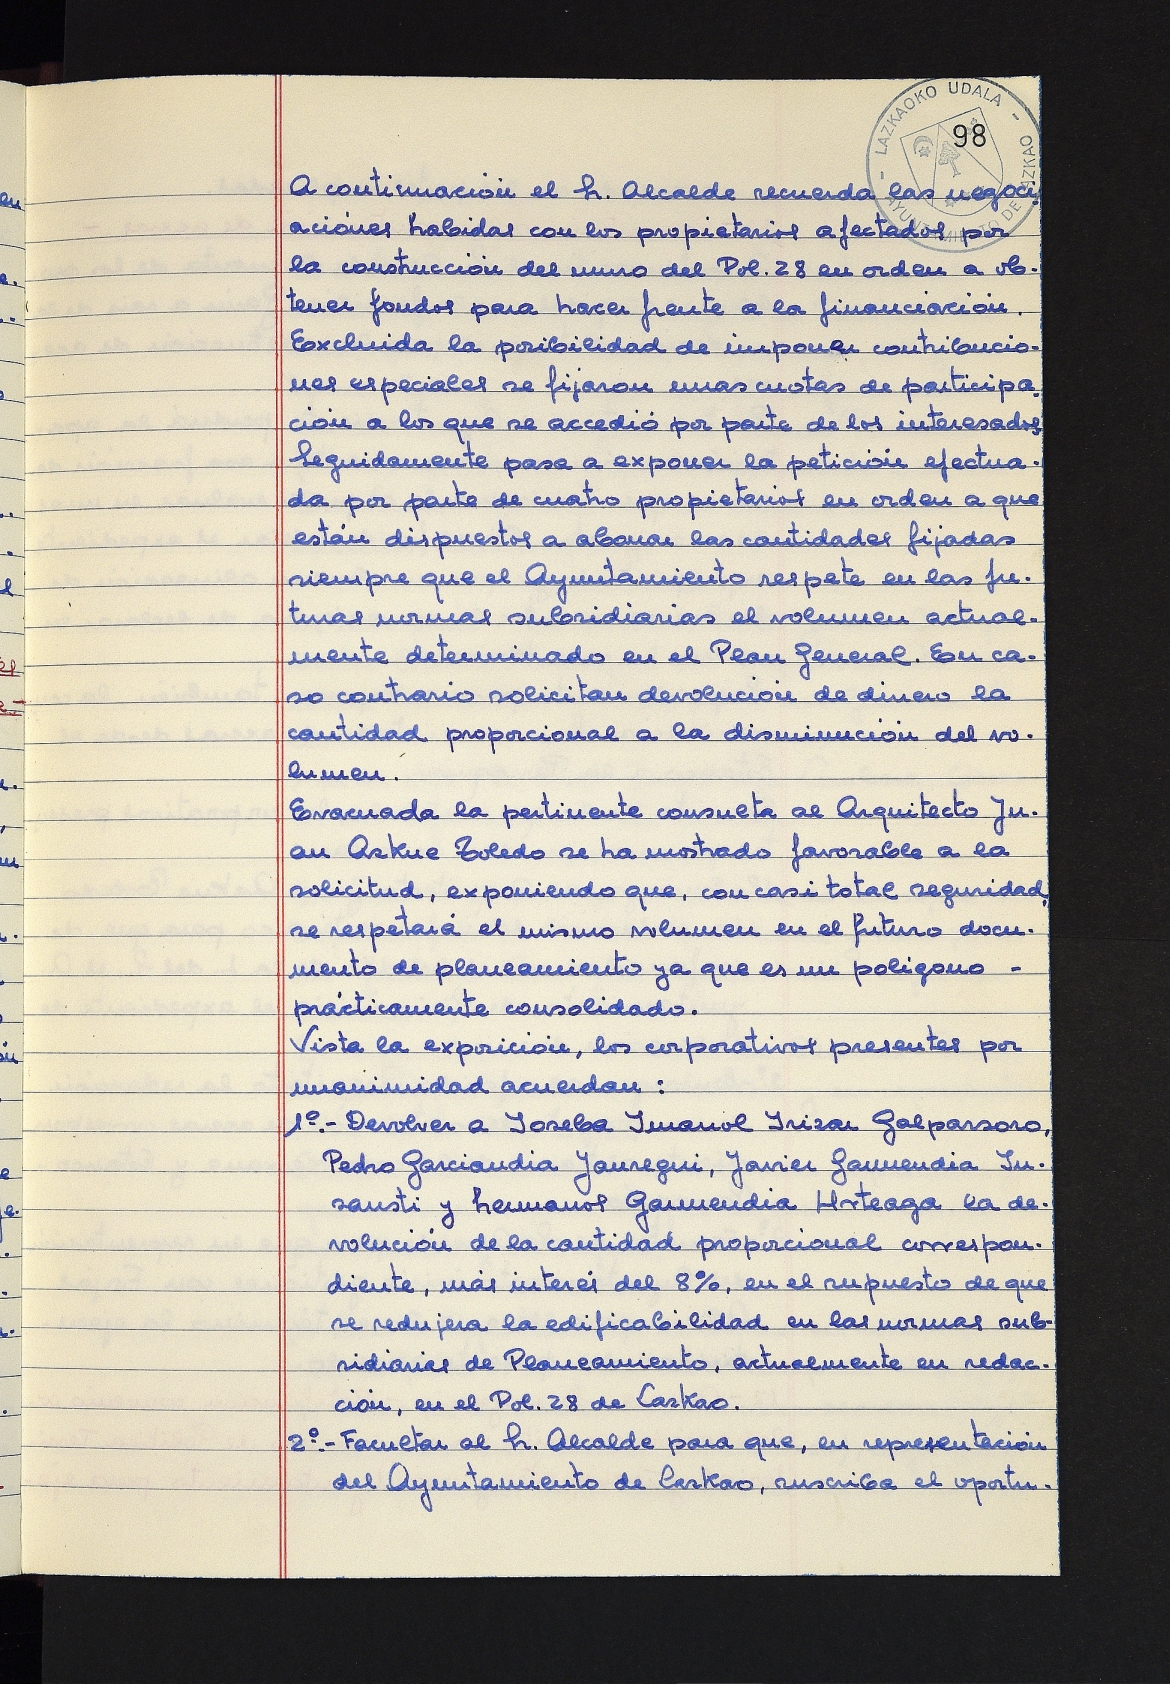 LAZKAOKO UDALA - AYUNTAMIENTO DE LAZKAO -
98
A continuación el Sr. Alcalde recuerda las negoci-
aciones habidas con los propietarios afectados por
la construcción del muro del Pol. 28 en orden a ob-
tener fondos para hacer frente a la financiación.
Excluida la posibilidad de imponer contribucio-
nes especiales se fijaron unas cuotas de participa-
ción a los que se accedió por parte de los interesados.
Seguidamente pasa a exponer la petición efectua-
da por parte de cuatro propietarios en orden a que
están dispuestos a abonar las cantidades fijadas
siempre que el Ayuntamiento respete en las fu-
turas normas subsidiarias el volumen actual-
mente determinado en el Plan General. En ca-
so contrario solicitan devolución de dinero la
cantidad proporcional a la disminución del vo-
lumen.
Evacuada la pertinente consulta al Arquitecto Ju-
an Askue Toledo se ha mostrado favorable a la
solicitud, exponiendo que, con casi total seguridad,
se respetará el mismo volumen en el futuro docu-
mento de planeamiento ya que es un polígono -
prácticamente consolidado.
Vista la exposición, los corporativos presentes por
unanimidad acuerdan :
1º.- Devolver a Joseba Imanol Irizar Galparsoro,
Pedro Garciandia Jauregui, Javier Garmendia In-
sausti y hermanos Garmendia Urteaga la de-
volución de la cantidad proporcional correspon-
diente, más interés del 8%, en el supuesto de que
se redujera la edificabilidad en las normas sub-
sidiarias de Planeamiento, actualmente en redac-
ción, en el Pol. 28 de Lazkao.
2º.- Facultar al Sr. Alcalde para que, en representación
del Ayuntamiento de Lazkao, suscriba el oportu-